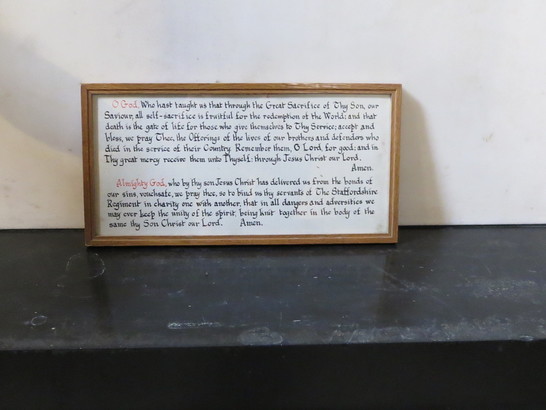 O God, Who hast taught us that through the Great Sacrifice of Thy Son, our
Saviour, all self-sacrifice is fruitful for the redemption of the World; and that
death is the gate of life for those who give themselves to Thy Service; accept and
bless, we pray Thee, the Offerings of the lives of our brothers and defenders who
died in the service of their Country. Remember them, O Lord, for good; and in
Thy great mercy receive them unto Thyself: through Jesus Christ our Lord.
Amen.
Almighty God, who by thy son Jesus Christ has delivered us from the bonds of
our sins, vouchsafe, we pray thee, so to bind us thy servants of The Staffordshire
Regiment in charity one with another, that in all dangers and adversities we
may ever keep the unity of the spirit, being knit together in the body of the
same thy Son Christ our Lord. Amen.